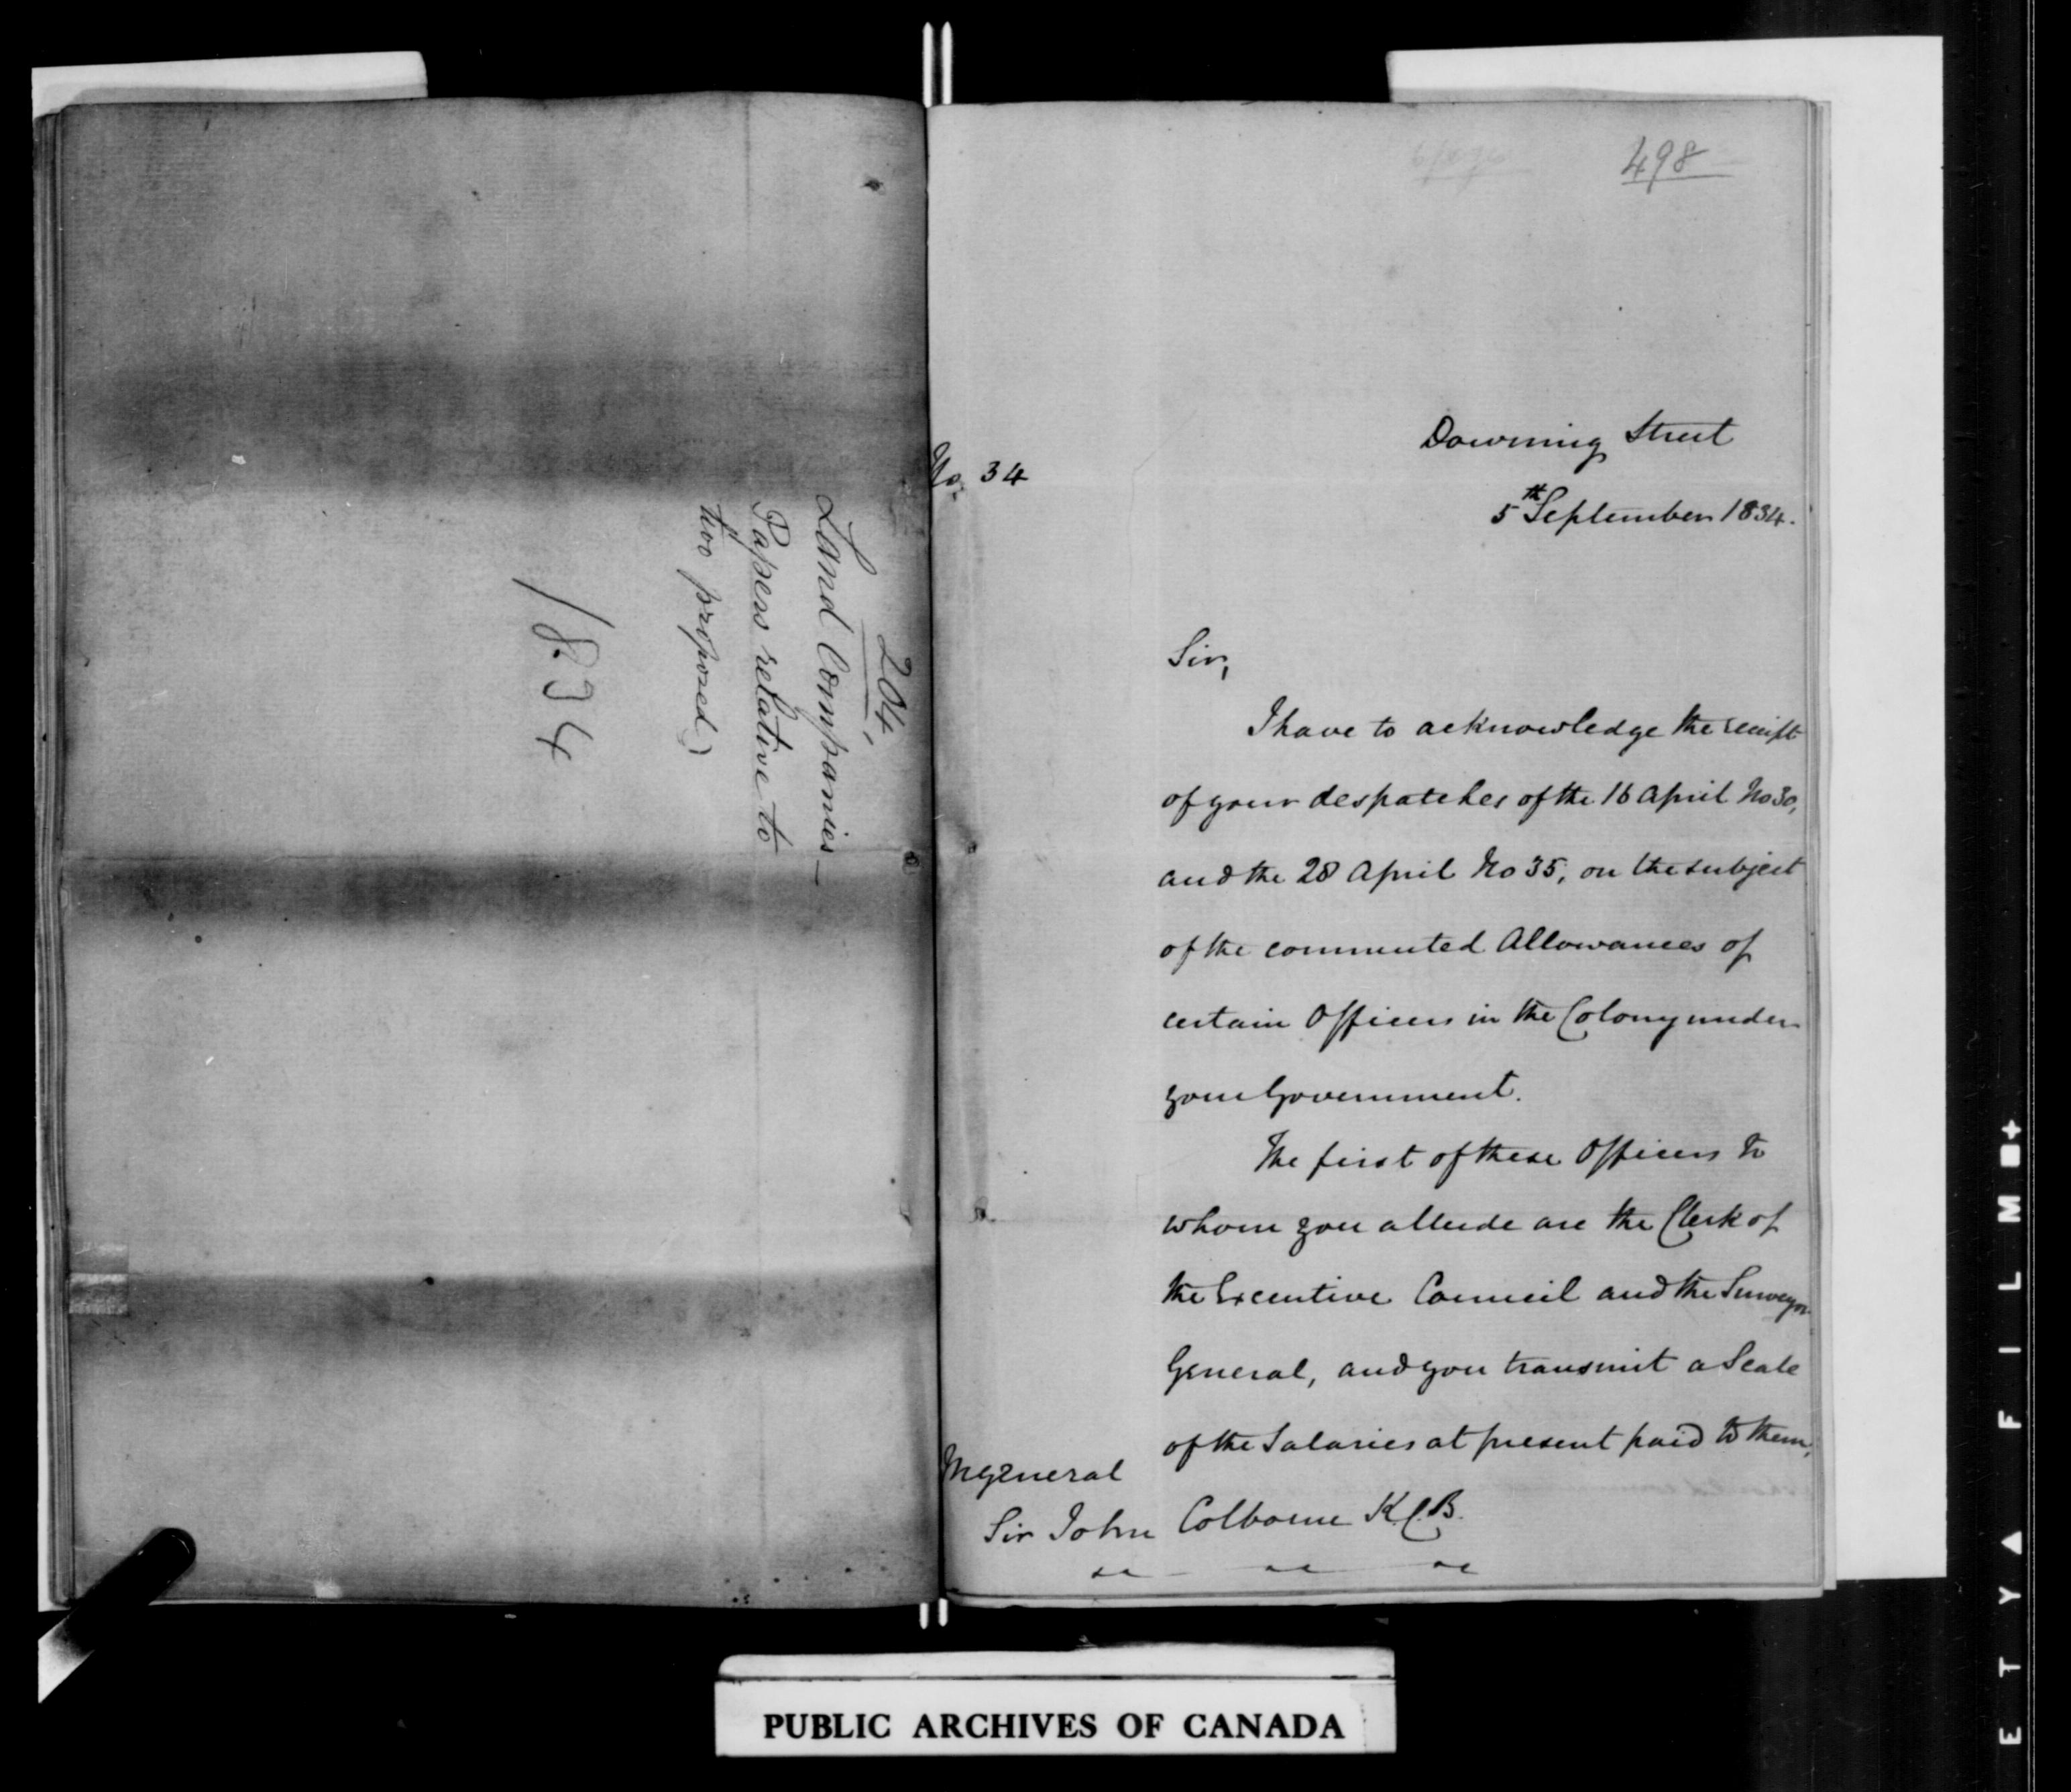 204,
Land Companies—
Papers relative to
two proposed)
1834
498
No. 34
Downing Street
5th September 1834.
Sir,
I have to acknowledge the receipt
of your despatches of the 16 April No 30,
and the 28 April No 35, on the subject
of the commuted Allowances of
certain Officers in the Colony under
your Government.
The first of these Officers to
whom you allude are the Clerk of
the Executive Council and the Surveyor
General, and you transmit a Scale
of the Salaries at present paid to them,
MGeneral
Sir John Colborne K.C.B.
PUBLIC ARCHIVES OF CANADA
E T Y ▲ F I L M ■+